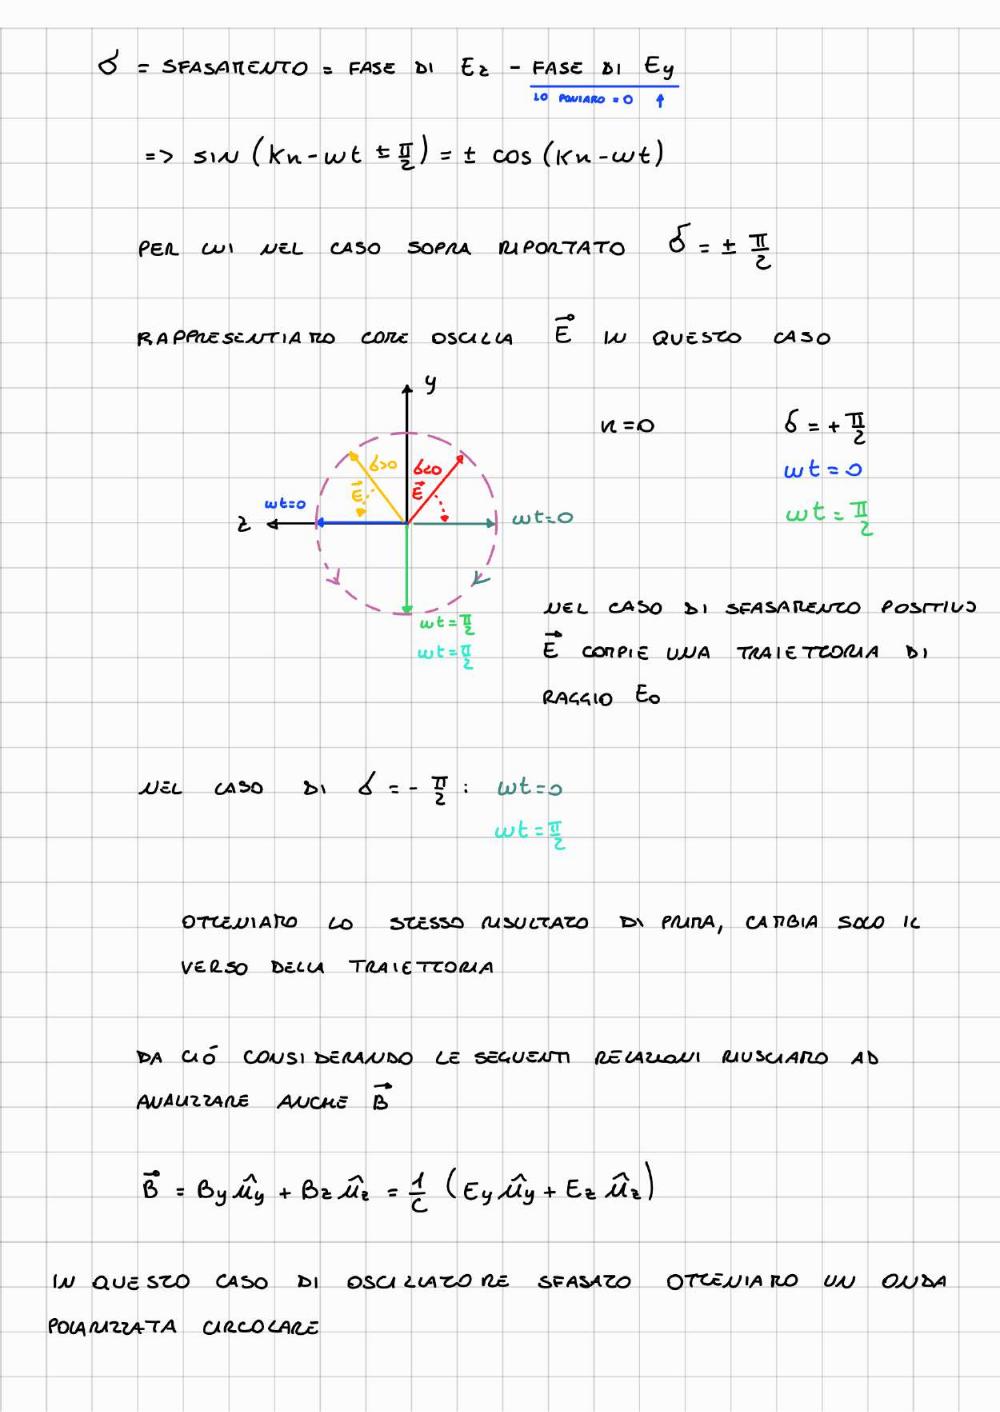 δ = SFASAMENTO = FASE DI Ez - FASE DI Ey
LO PONIAMO = 0 ↑
=> sin (Kx - ωt ± π/2) = ± cos (Kx - ωt)
PER CUI NEL CASO SOPRA RIPORTATO δ = ± π/2
RAPPRESENTIAMO COME OSCILLA E⃗ IN QUESTO CASO
y
x=0 δ = + π/2
δ>0 δ<0
ωt = 0
E⃗ E⃗
ωt=0
z ωt=0
ωt = π/2
NEL CASO DI SFASAMENTO POSITIVO
ωt = π/2
ωt = π/2
E⃗ COMPIE UNA TRAIETTORIA DI
RAGGIO E₀
NEL CASO DI δ = - π/2 : ωt=0
ωt = π/2
OTTENIAMO LO STESSO RISULTATO DI PRIMA, CAMBIA SOLO IL
VERSO DELLA TRAIETTORIA
DA CIÓ CONSIDERANDO LE SEGUENTI RELAZIONI RIUSCIAMO AD
ANALIZZARE ANCHE B⃗
B⃗ = By ûy + Bz ûz = 1/c (Ey ûy + Ez ûz)
IN QUESTO CASO DI OSCILLATORE SFASATO OTTENIAMO UN ONDA
POLARIZZATA CIRCOLARE